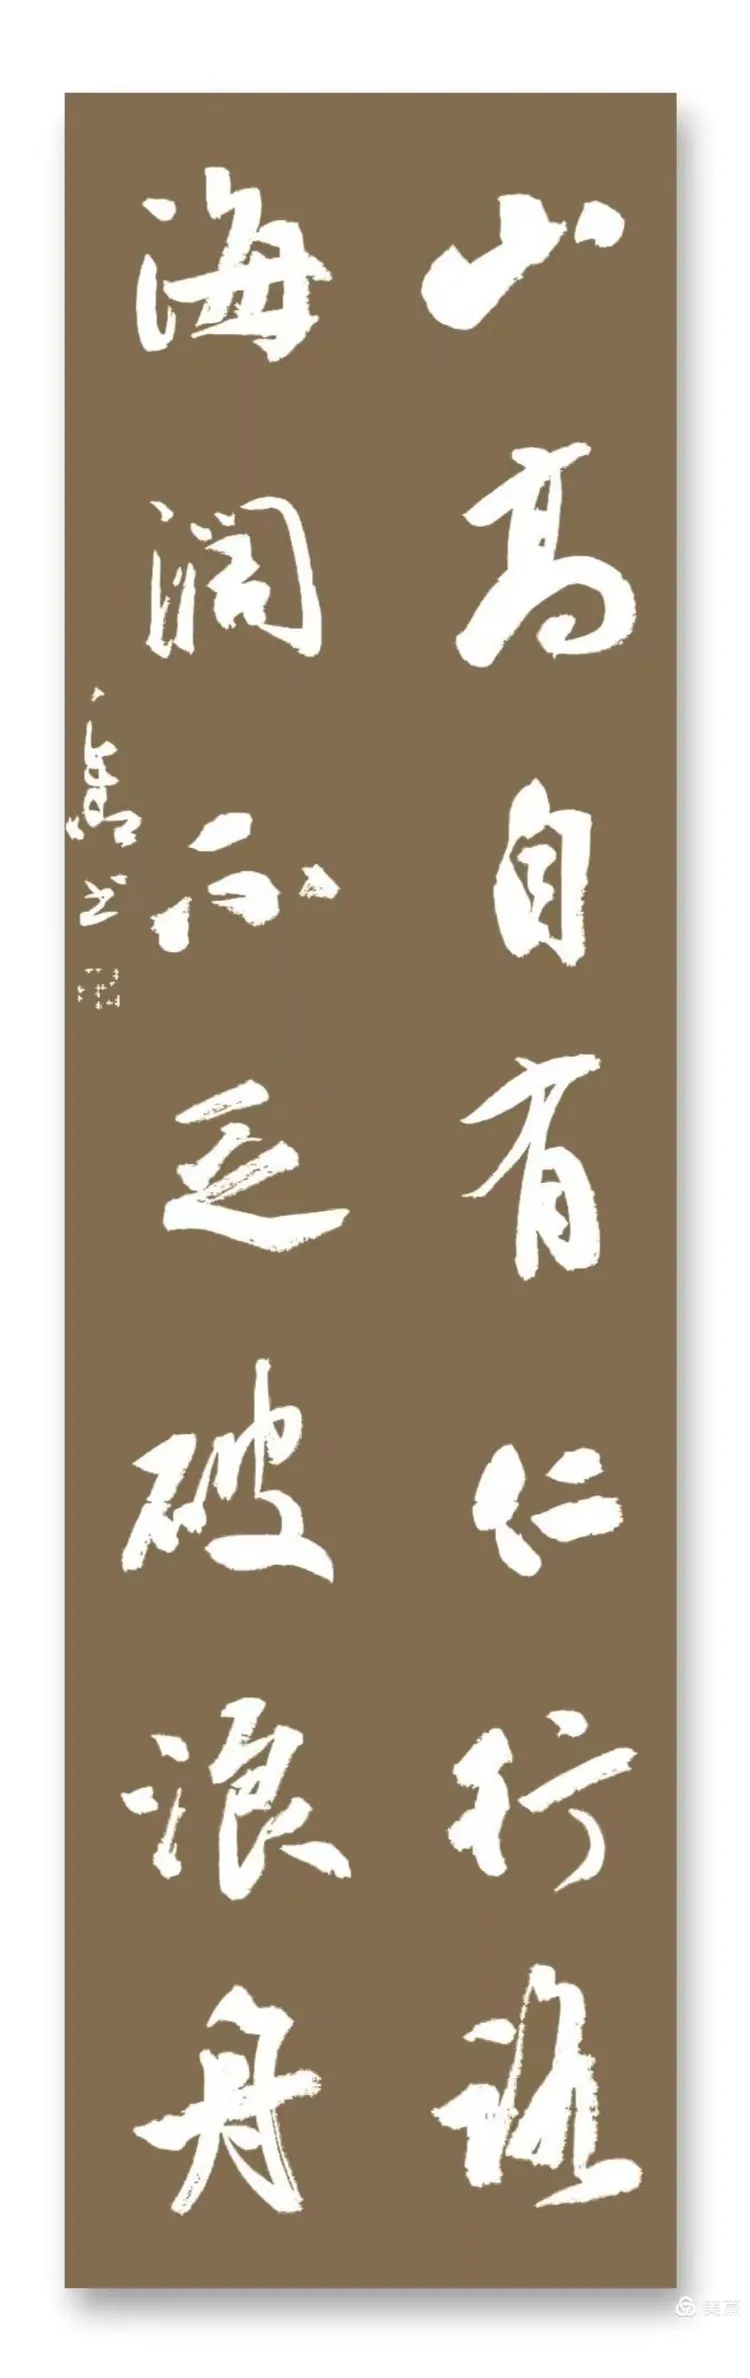 山高自有仁行路
海阔不乏破浪舟
书
美篇